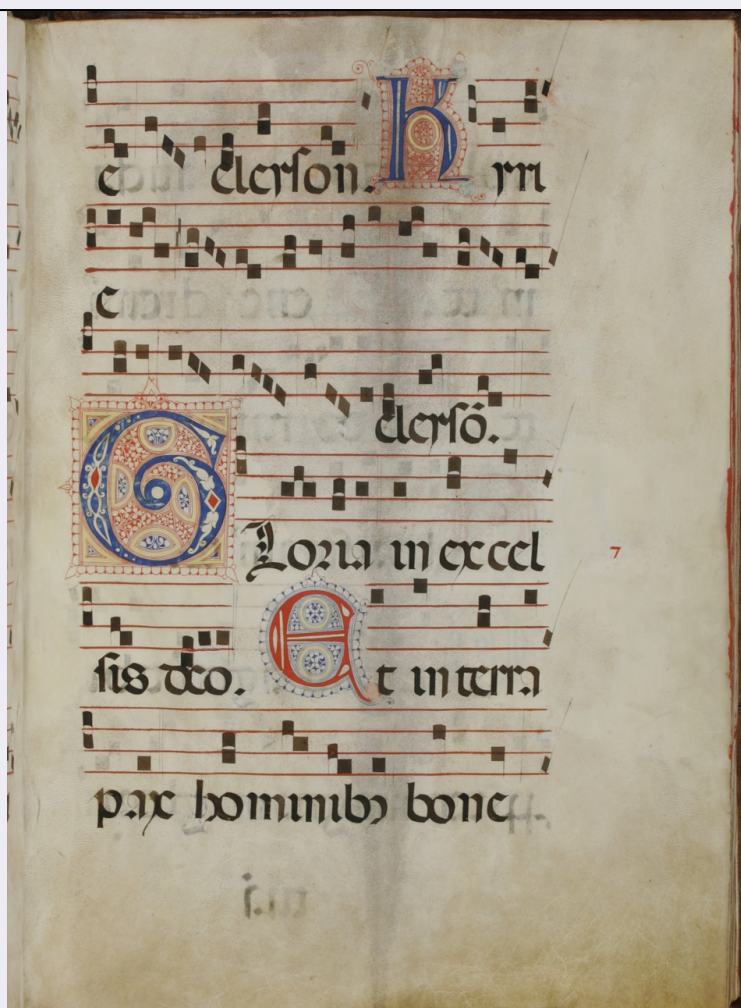 e eleyson. Kyri
e
eleysō.
Gloria in excel
7
sis deo. Et in terra
pax hominibꝫ bone